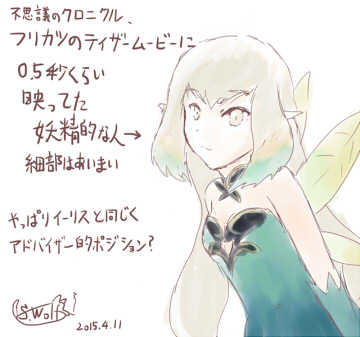 不思議のクロニクル、
フリカツのティザームービーに
0.5秒くらい
映ってた
妖精的な人→
細部はあいまい
やっぱりイーリスと同じく
アドバイザー的ポジション?
S.Wolf
2015.4.11